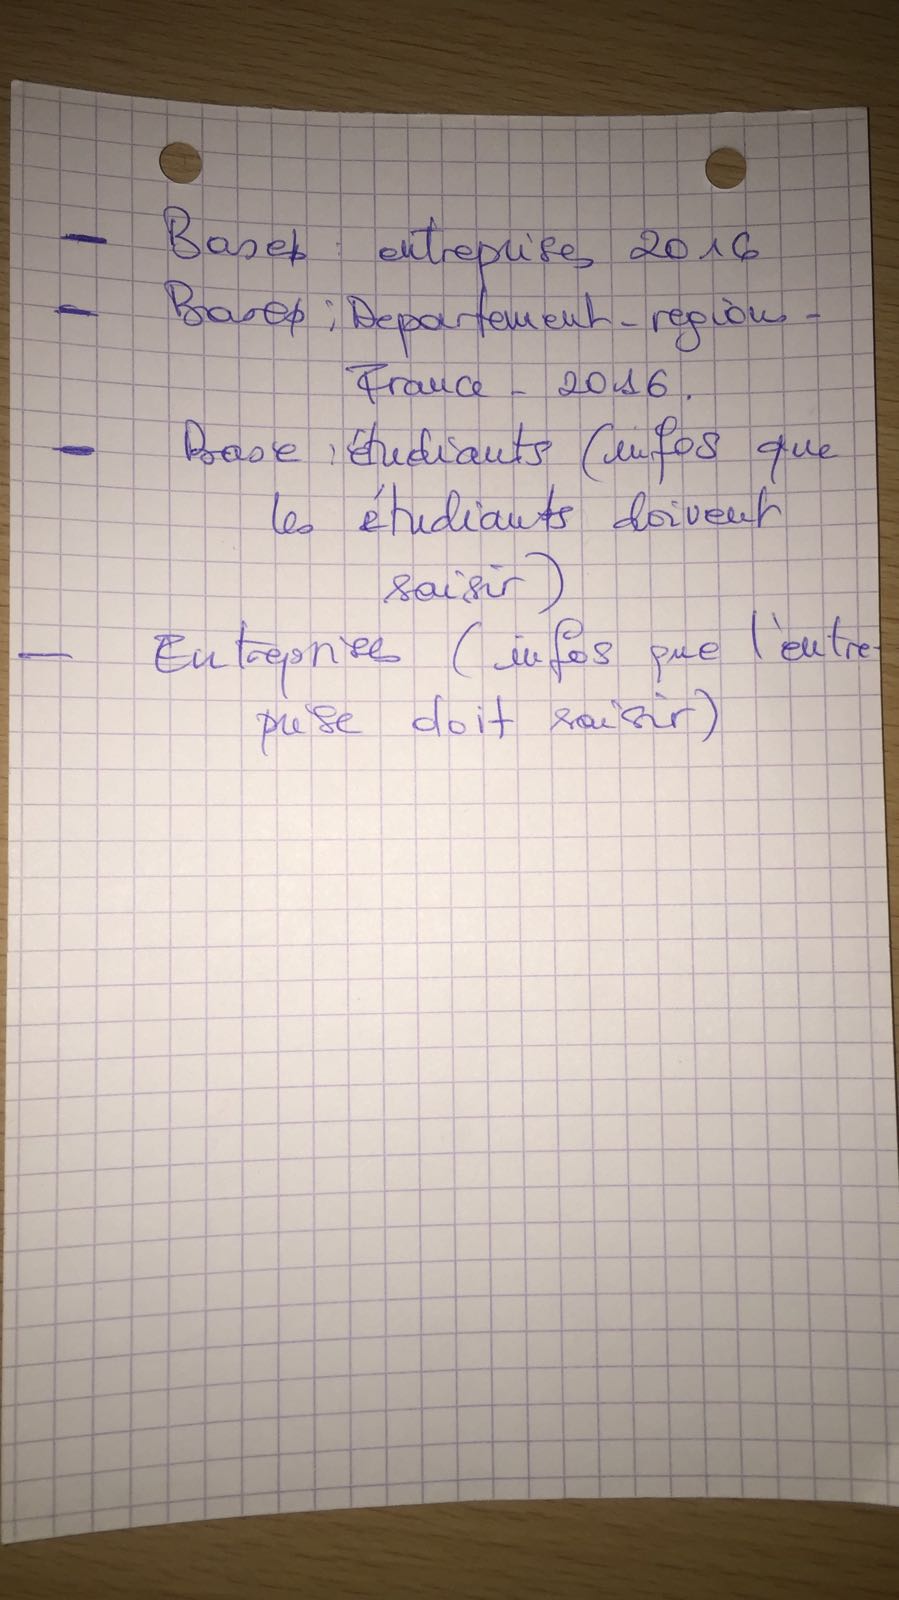 - Base : entreprises 2016
- Base : Departement - regions -
France - 2016.
- Base : étudiants (infos que
les étudiants doivent
saisir)
- Entreprises (infos que l'entre-
prise doit saisir)